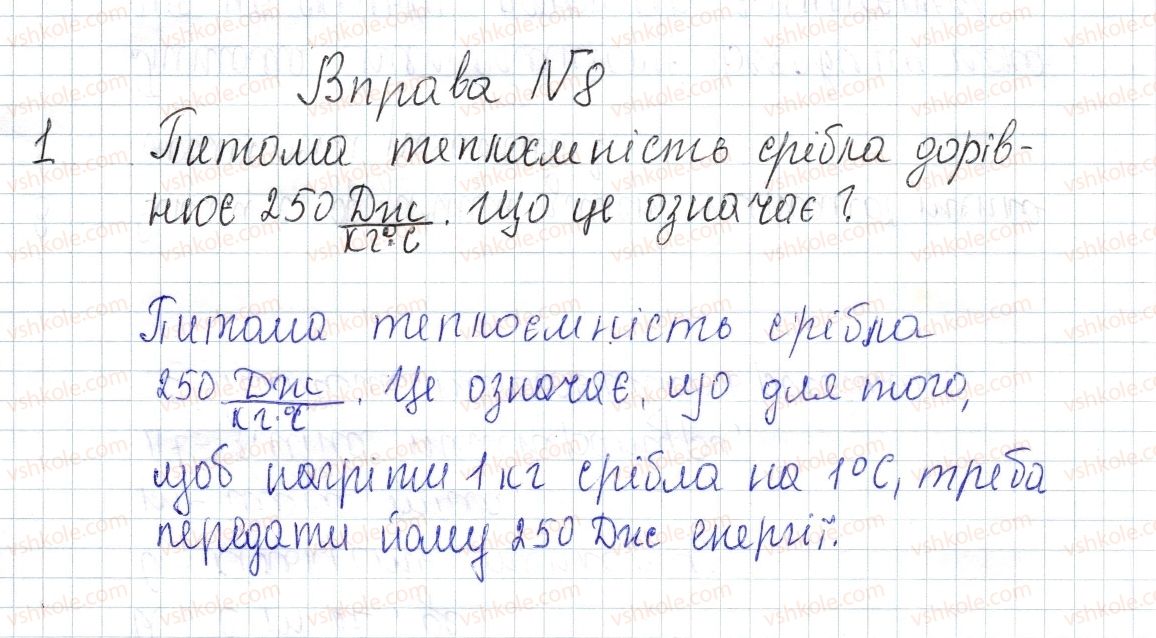 Вправа №8
1 Питома теплоємність срібла дорів-
нює 250 Дж/кг·°С. Що це означає?
Питома теплоємність срібла
250 Дж/кг·°С. Це означає, що для того,
щоб нагріти 1 кг срібла на 1°С, треба
передати йому 250 Дж енергії.